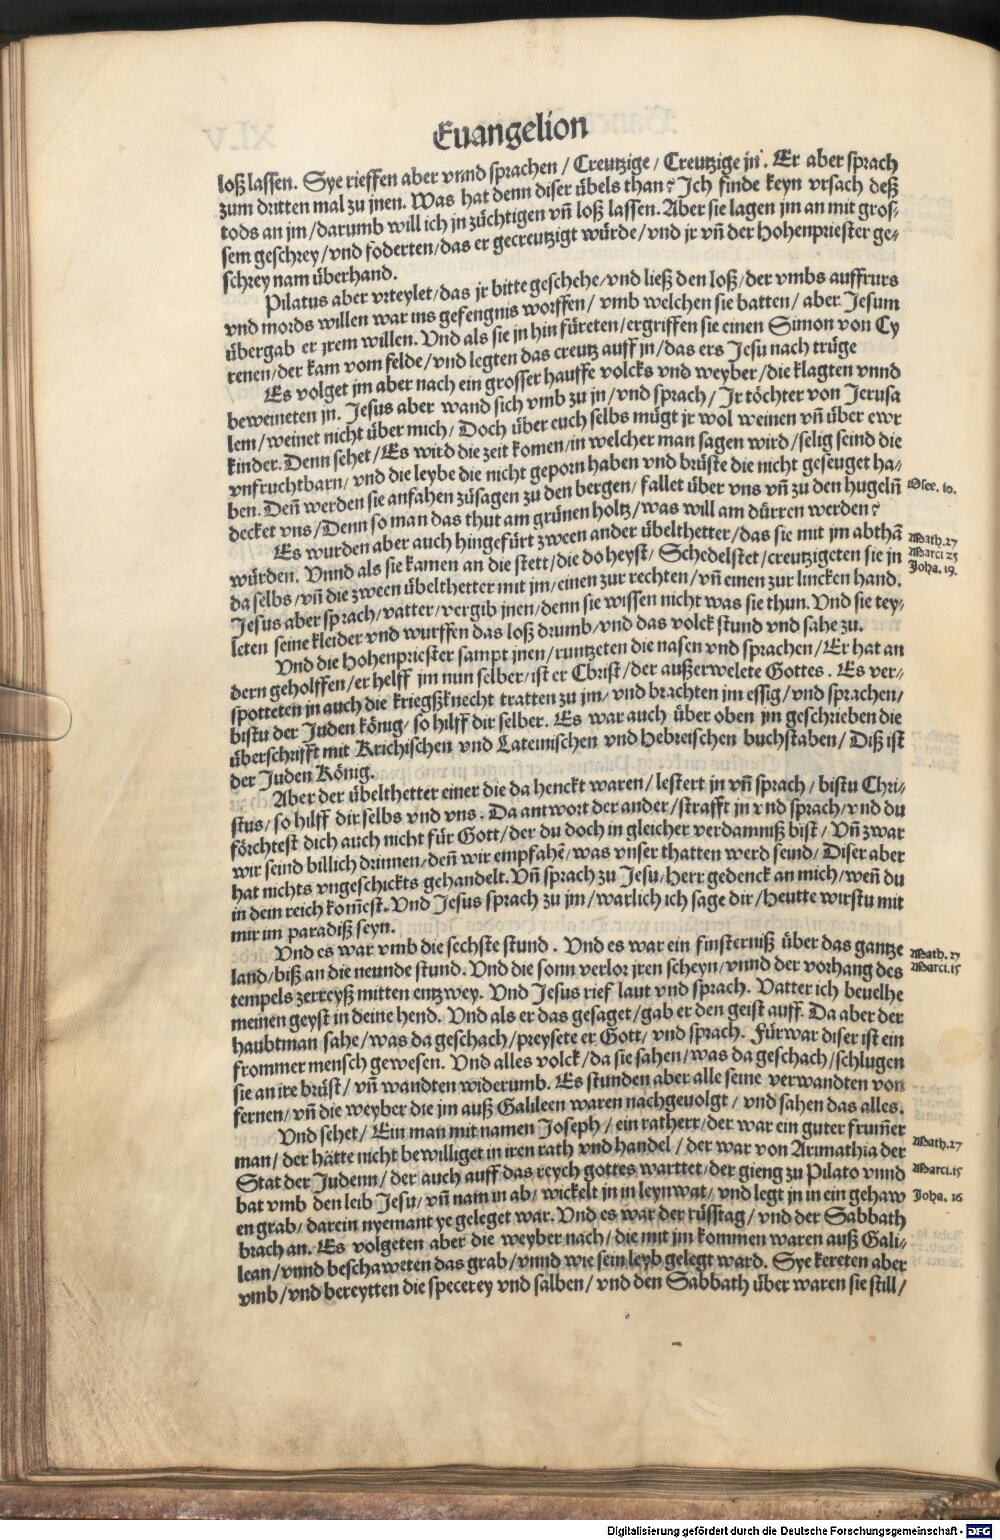 Euangelion
loß lassen. Sye rieffen aber vnnd sprachen / Creutzige / Creutzige jn. Er aber sprach
zum dritten mal zu jnen. Was hat denn diser übels than? Ich finde keyn vrsach deß
tods an jm / darumb will ich jn züchtigen vñ loß lassen. Aber sie lagen jm an mit gros⸗
sem geschrey / vnd foderten / das er gecreutzigt würde / vnd jr vñ der Hohenpriester ge⸗
schrey nam überhand.
Pilatus aber vrteylet / das jr bitte geschehe / vnd ließ den loß / der vmbs auffrurs
vnd mords willen war ins gefengnis worffen / vmb welchen sie batten / aber Jesum
übergab er jrem willen. Vnd als sie jn hin füreten / ergriffen sie einen Simon von Cy
renen / der kam vom felde / vnd legten das creutz auff jn / das ers Jesu nach trüge
Es volget jm aber nach ein grosser hauffe volcks vnd weyber / die klagten vnnd
beweineten jn. Jesus aber wand sich vmb zu jn / vnd sprach / Jr töchter von Jerusa
lem / weinet nicht über mich / Doch über euch selbs mügt jr wol weinen vñ über ewr
kinder. Denn sehet / Es wird die zeit komen / in welcher man sagen wird / selig seind die
vnfruchtbarn / vnd die leybe die nicht geporn haben vnd brüste die nicht geseuget ha⸗
ben. Deñ werden sie anfahen züsagen zu den bergen / fallet über vns vñ zu den hugelñ
Osee. 10.
decket vns / Denn so man das thut am grünen holtz / was will am dürren werden?
Es wurden aber auch hingefürt zween ander übelthetter / das sie mit jm abthã
Math. 27
würden. Vnnd als sie kamen an die stett / die do heyst / Schedelstet / creutzigeten sie jn
Marci 25
da selbs / vñ die zween übelthetter mit jm / einen zur rechten / vñ einen zur lincken hand.
Joha. 19.
Jesus aber sprach / vatter / vergib jnen / denn sie wissen nicht was sie thun. Vnd sie tey⸗
leten seine kleider vnd wurffen das loß drumb / vnd das volck stund vnd sahe zu.
Vnd die Hohenpriester sampt jnen / runtzeten die nasen vnd sprachen / Er hat an
dern geholffen / er helff jm nun selber / ist er Christ / der außerwelete Gottes. Es ver⸗
spotteten jn auch die kriegßknecht tratten zu jm / vnd brachten jm essig / vnd sprachen /
bistu der Juden könig / so hilff dir selber. Es war auch über oben jm geschrieben die
überschrifft mit Krichischen vnd Lateinischen vnd Hebreischen buchstaben / Diß ist
der Juden König.
Aber der übelthetter einer die da henckt waren / lestert jn vñ sprach / bistu Chri⸗
stus / so hilff dir selbs vnd vns. Da antwort der ander / strafft jn vnd sprach / vnd du
förchtest dich auch nicht für Gott / der du doch in gleicher verdamniß bist / Vñ zwar
wir seind billich drinnen / deñ wir empfahẽ / was vnser thatten werd seind / Diser aber
hat nichts vngeschickts gehandelt. Vñ sprach zu Jesu / Herr gedenck an mich / weñ du
in dein reich kom̃est. Vnd Jesus sprach zu jm / warlich ich sage dir / Heutte wirstu mit
mir im paradiß seyn.
Vnd es war vmb die sechste stund. Vnd es war ein finsterniß über das gantze
Math. 27
land / biß an die neunde stund. Vnd die sonn verlor jren scheyn / vnnd der vorhang des
Marci. 15
tempels zerreyß mitten entzwey. Vnd Jesus rief laut vnd sprach. Vatter ich beuelhe
meinen geyst in deine hend. Vnd als er das gesaget / gab er den geist auff. Da aber der
haubtman sahe / was da geschach / preysete er Gott / vnd sprach. Fürwar diser ist ein
frommer mensch gewesen. Vnd alles volck / da sie sahen / was da geschach / schlugen
sie an ire brüst / vñ wandten widerumb. Es stunden aber alle seine verwandten von
fernen / vñ die weyber die jm auß Galileen waren nachgeuolgt / vnd sahen das alles.
Vnd sehet / Ein man mit namen Joseph / ein ratherr / der war ein guter frum̃er
man / der hätte nicht bewilliget in iren rath vnd handel / der war von Arimathia der
Math. 27
Stat der Judenn / der auch auff das reych gottes warttet / der gieng zu Pilato vnnd
Marci. 15
bat vmb den leib Jesu / vñ nam in ab / wickelt jn in leynwat / vnd legt jn in ein gehaw
Joha. 16
en grab / darein nyemant ye geleget war. Vnd es war der rüsstag / vnd der Sabbath
brach an. Es volgeten aber die weyber nach / die mit jm kommen waren auß Gali⸗
lean / vnnd beschaweten das grab / vnnd wie sein leyb gelegt ward. Sye kereten aber
vmb / vnd bereytten die specerey vnd salben / vnd den Sabbath über waren sie still /
Digitalisierung gefördert durch die Deutsche Forschungsgemeinschaft - DFG